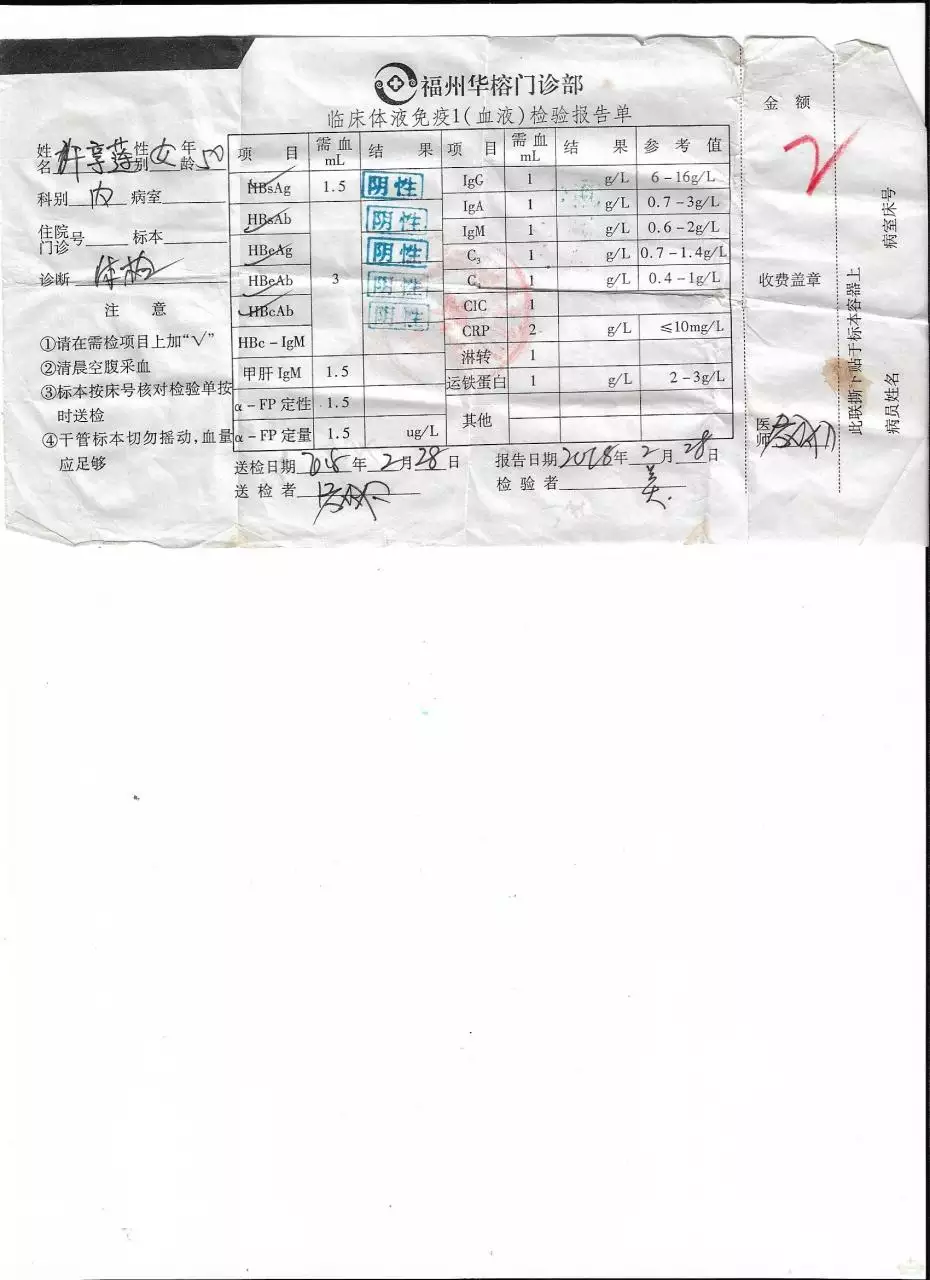 福州华榕门诊部
临床体液免疫1(血液)检验报告单
姓名 许享莲 性别 女 年龄 50
科别 内 病室
住院门诊号 标本
诊断 体检
注 意
①请在需检项目上加“√”
②清晨空腹采血
③标本按床号核对检验单按
时送检
④干管标本切勿摇动,血量
应足够
项 目 需血mL 结 果 项 目 需血mL 结 果 参考值
HBsAg 1.5 阴性 IgG 1 g/L 6-16g/L
HBsAb 阴性 IgA 1 g/L 0.7-3g/L
HBeAg 阴性 IgM 1 g/L 0.6-2g/L
HBeAb 3 阴性 C₃ 1 g/L 0.7-1.4g/L
HBcAb 阴性 C 1 g/L 0.4-1g/L
HBc-IgM CIC 1
CRP 2 g/L ≤10mg/L
甲肝IgM 1.5 淋转 1
α-FP定性 1.5 运铁蛋白 1 g/L 2-3g/L
α-FP定量 1.5 ug/L 其他
送检日期 年 2月28日 报告日期2018年2月28日
送检者 检验者 美
金 额
2
收费盖章
医师
此联撕下贴于标本容器上
病室床号
病员姓名